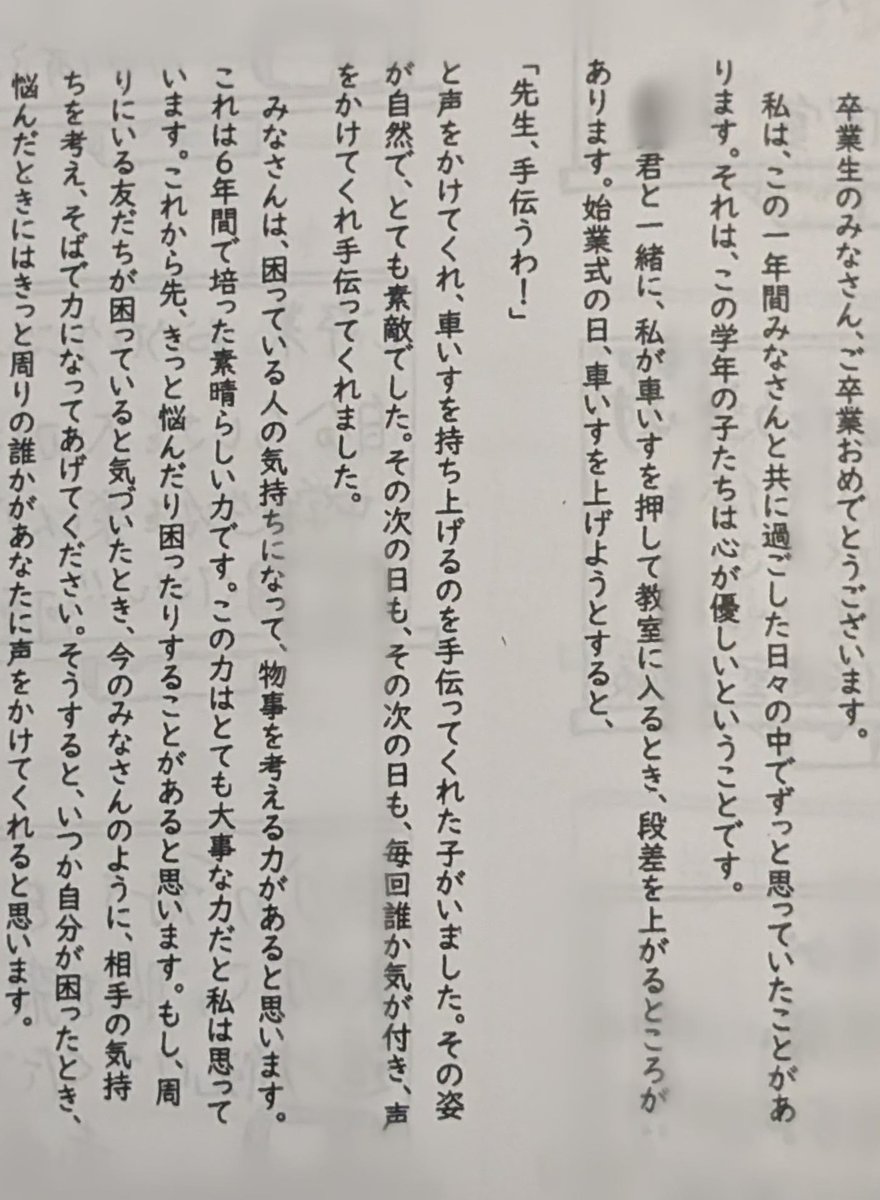 卒業生のみなさん、ご卒業おめでとうございます。
私は、この一年間みなさんと共に過ごした日々の中でずっと思っていたことがあ
ります。それは、この学年の子たちは心が優しいということです。
君と一緒に、私が車いすを押して教室に入るとき、段差を上がるところが
あります。始業式の日、車いすを上げようとすると、
「先生、手伝うわ！」
と声をかけてくれ、車いすを持ち上げるのを手伝ってくれた子がいました。その姿
が自然で、とても素敵でした。その次の日も、その次の日も、毎回誰か気が付き、声
をかけてくれ手伝ってくれました。
みなさんは、困っている人の気持ちになって、物事を考える力があると思います。
これは６年間で培った素晴らしい力です。この力はとても大事な力だと私は思って
います。これから先、きっと悩んだり困ったりすることがあると思います。もし、周
りにいる友だちが困っていると気づいたとき、今のみなさんのように、相手の気持
ちを考え、そばで力になってあげてください。そうすると、いつか自分が困ったとき、
悩んだときにはきっと周りの誰かがあなたに声をかけてくれると思います。